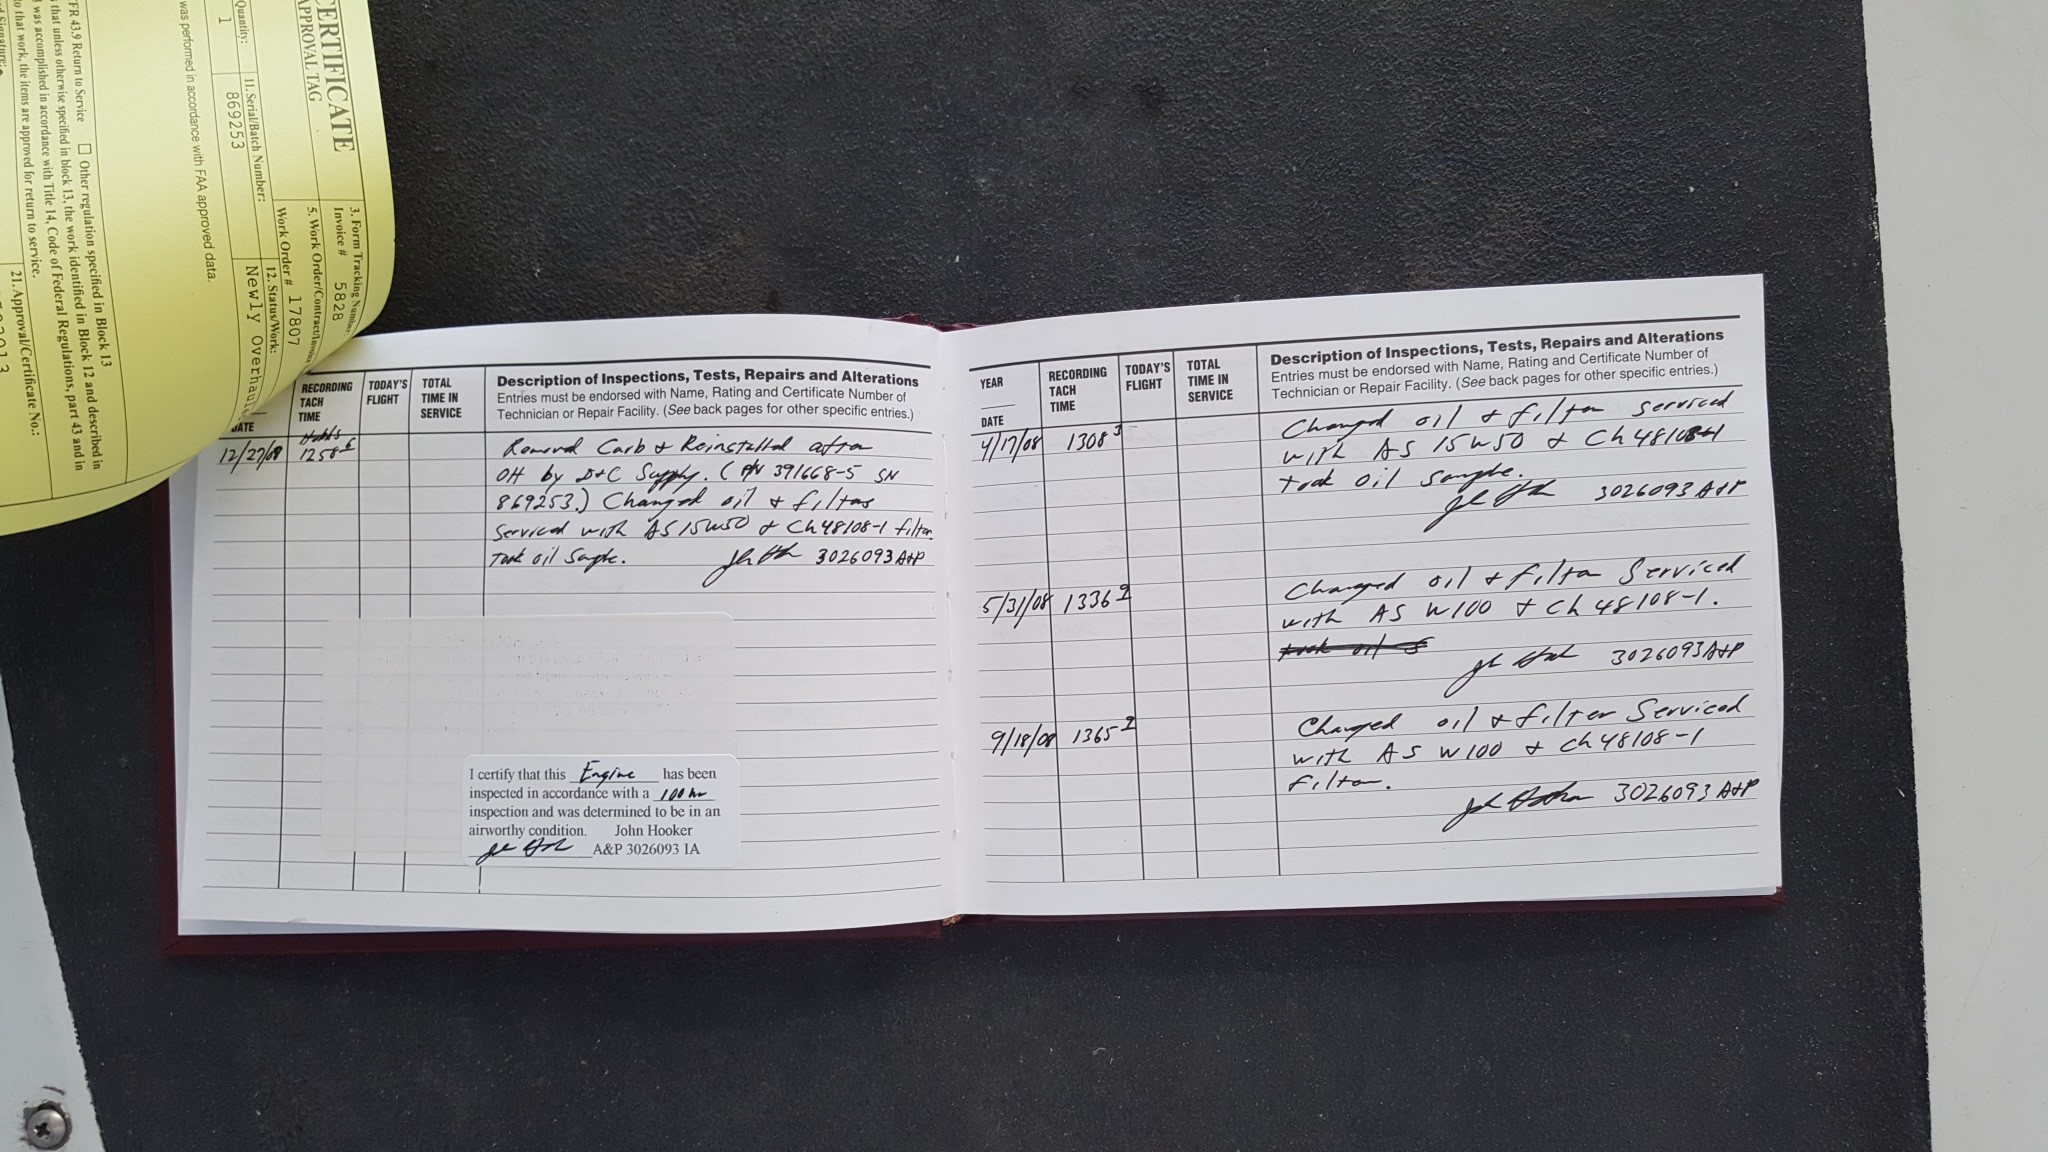 CERTIFICATE
APPROVAL TAG
3. Form Tracking Number:
Invoice # 5828
5. Work Order/Contract/Invoice
Work Order # 17807
Quantity:
1
11. Serial/Batch Number:
869253
12. Status/Work:
Newly Overhaul
was performed in accordance with FAA approved data.
FR 43.9 Return to Service □ Other regulation specified in Block 13
that unless otherwise specified in block 13, the work identified in Block 12 and described in
was accomplished in accordance with Title 14, Code of Federal Regulations, part 43 and in
to that work, the items are approved for return to service.
21. Approval/Certificate No.:
DATE
RECORDING TACH TIME
TODAY'S FLIGHT
TOTAL TIME IN SERVICE
Description of Inspections, Tests, Repairs and Alterations
Entries must be endorsed with Name, Rating and Certificate Number of
Technician or Repair Facility. (See back pages for other specific entries.)
Hobbs
12/27/08 1258 6 Removed Carb & Reinstalled after
OH by D&C Supply. (P/N 391668-5 SN
869253.) Changed oil & filter
Serviced with AS 15W50 & Ch48108-1 filter
Took oil Sample. 3026093 A&P
I certify that this Engine has been
inspected in accordance with a 100 hr
inspection and was determined to be in an
airworthy condition. John Hooker
A&P 3026093 IA
YEAR
DATE
RECORDING TACH TIME
TODAY'S FLIGHT
TOTAL TIME IN SERVICE
Description of Inspections, Tests, Repairs and Alterations
Entries must be endorsed with Name, Rating and Certificate Number of
Technician or Repair Facility. (See back pages for other specific entries.)
4/17/08 1308 3 Changed oil & filter serviced
with AS 15W50 & Ch48108-1
took oil sample.
3026093 A&P
5/31/08 1336 9 Changed oil & filter Serviced
with AS W100 & Ch 48108-1.
took oil s
3026093 A&P
9/18/08 1365 2 Changed oil & filter Serviced
with AS W100 & Ch48108-1
filter.
3026093 A&P